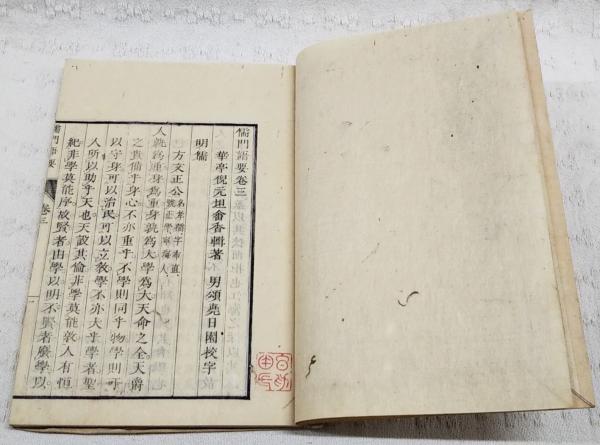 儒門語要卷三
華亭倪元坦畬香輯著 男頌堯日園校字
明儒
方文正公名孝孺字希直號正學寧海人
人孰為重身為重身孰為大學為大天命之全天爵
之貴備乎身心不亦重乎不學則同乎物學則可
以守身可以治民可以立教學不亦大乎學者聖
人所以助乎天也天設其倫非學莫能敦人有恒
紀非學莫能序故賢者由學以明不賢者廢學以
儒門語要
卷三
一